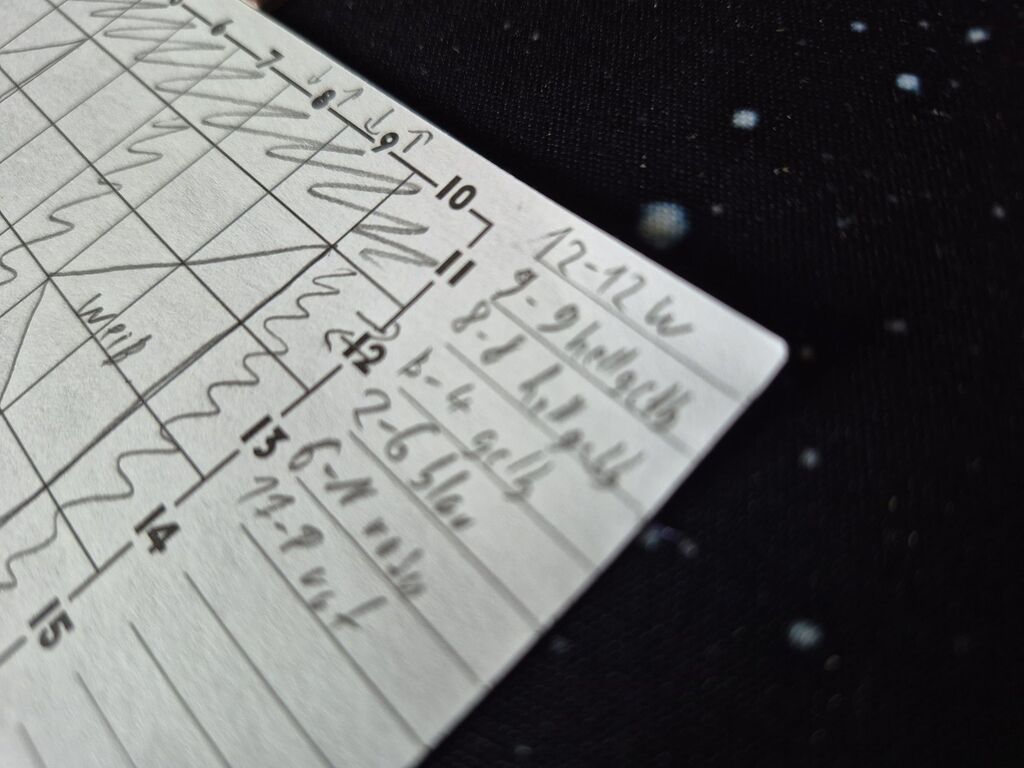 6 7 8 9 10
11
12
13
14
15
Weiß
12-12 W
9-9 hellgelb
8-8 hellgelb
B-4 gelb
2-6 blau
6-N rosa
11-9 rot